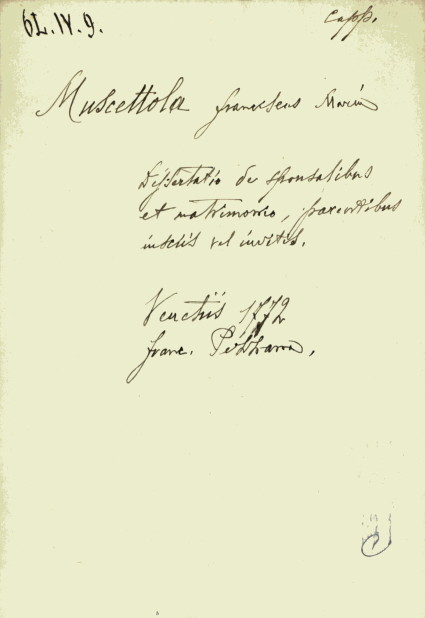 6L.IV.9.
Capp.
Muscettola Franciscus Maria
Dissertatio de sponsalibus
et matrimonio, parentibus
insciis vel invitis.
Venetiis 1772
Franc.